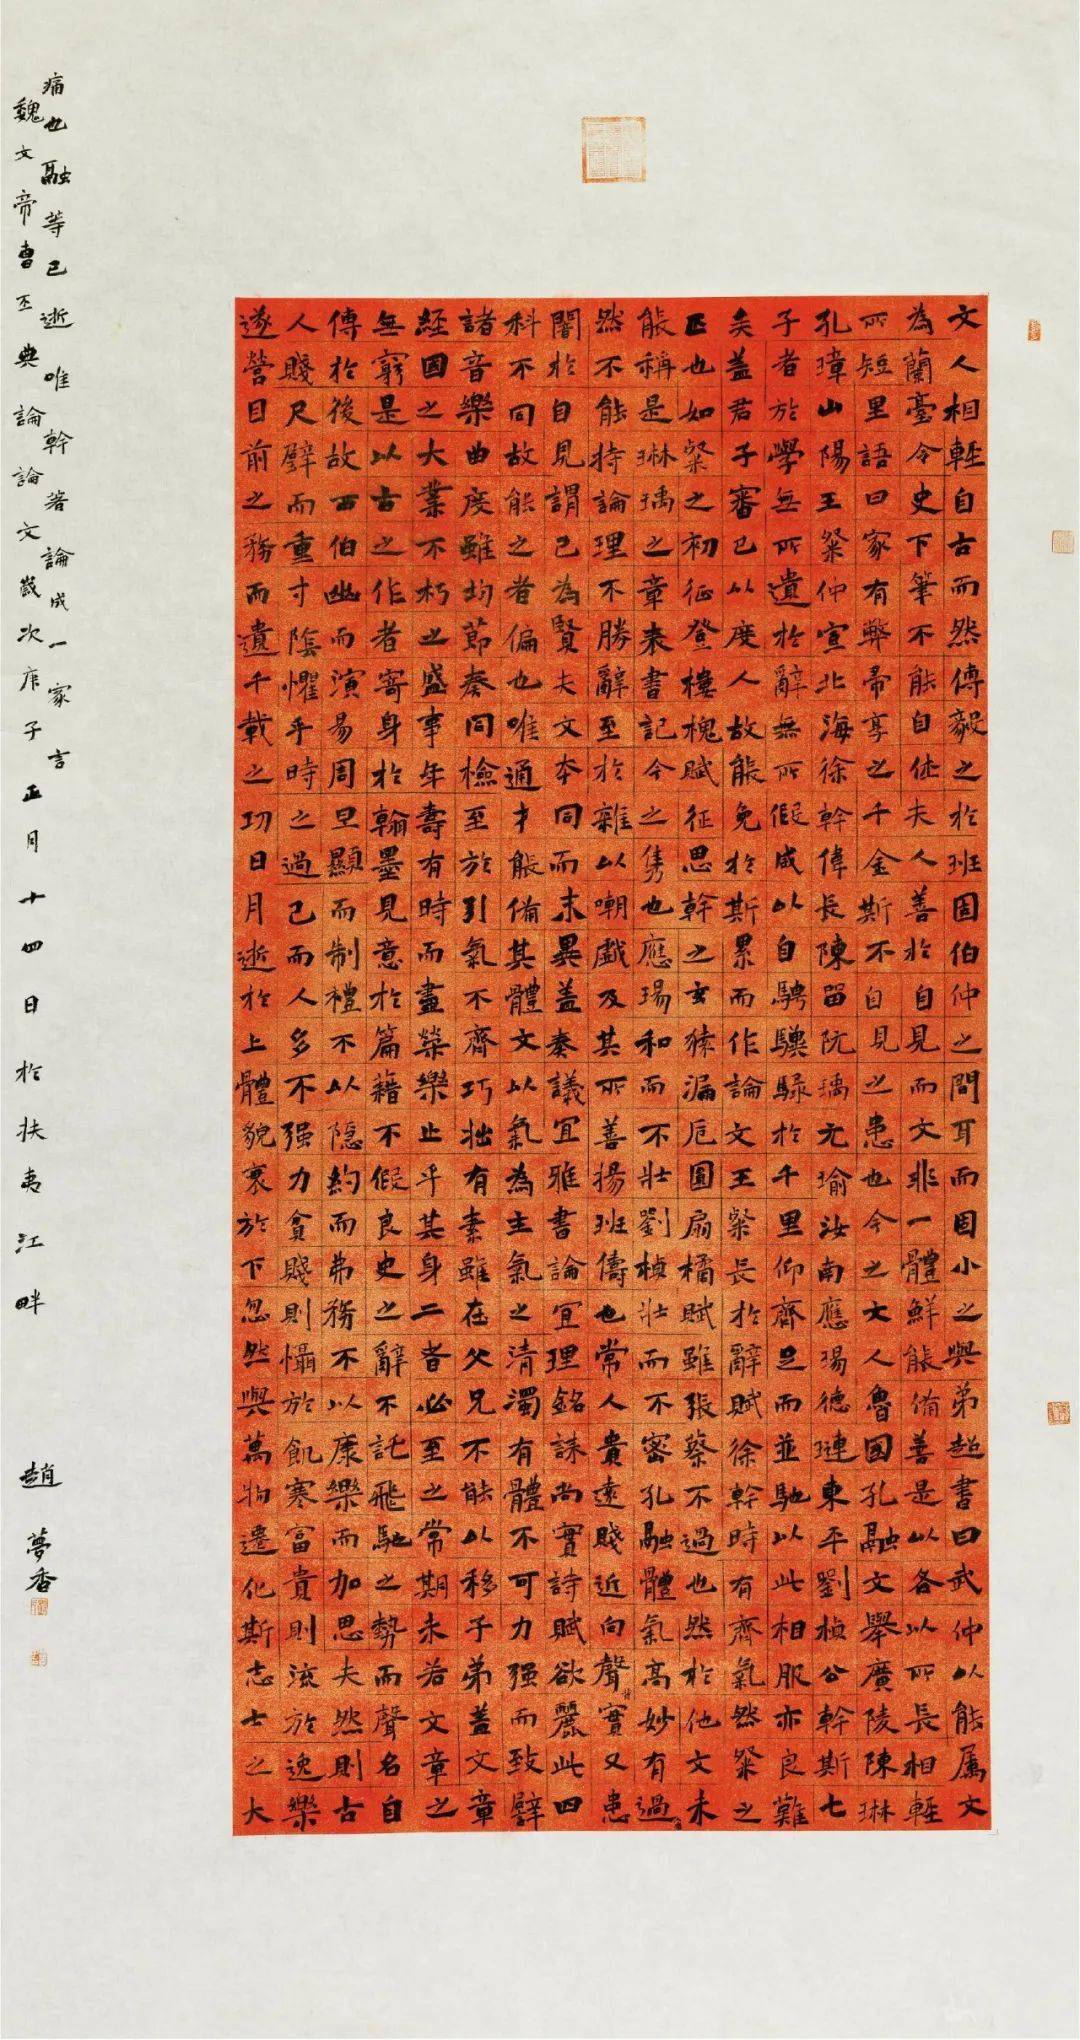 文人相輕自古而然傅毅之於班固伯仲之間耳而固小之與弟超書曰武仲以能屬文
為蘭臺令史下筆不能自休夫人善於自見而文非一體鮮能備善是以各以所長相輕
所短里語曰家有弊帚享之千金斯不自見之患也今之文人魯國孔融文舉廣陵陳琳
孔璋山陽王粲仲宣北海徐幹偉長陳留阮瑀元瑜汝南應瑒德璉東平劉楨公幹斯七
子者於學無所遺於辭無所假咸以自騁驥騄於千里仰齊足而並馳以此相服亦良難
矣蓋君子審己以度人故能免於斯累而作論文王粲長於辭賦徐幹時有齊氣然粲之
匹也如粲之初征登樓槐賦征思幹之玄猿漏卮圓扇橘賦雖張蔡不過也然於他文未
能稱是琳瑀之章表書記今之雋也應瑒和而不壯劉楨壯而不密孔融體氣高妙有過
然不能持論理不勝辭至於雜以嘲戲及其所善揚班儔也常人貴遠賤近向聲背實又患
闇於自見謂己為賢夫文本同而末異蓋奏議宜雅書論宜理銘誄尚實詩賦欲麗此四
科不同故能之者偏也唯通才能備其體文以氣為主氣之清濁有體不可力强而致譬
諸音樂曲度雖均節奏同檢至於引氣不齊巧拙有素雖在父兄不能以移子弟蓋文章
經國之大業不朽之盛事年壽有時而盡榮樂止乎其身二者必至之常期未若文章之
無窮是以古之作者寄身於翰墨見意於篇籍不假良史之辭不託飛馳之勢而聲名自
傳於後故西伯幽而演易周旦顯而制禮不以隱約而弗務不以康樂而加思夫然則古
人賤尺璧而重寸陰懼乎時之過已而人多不强力貧賤則懾於飢寒富貴則流於逸樂
遂營目前之務而遺千載之功日月逝於上體貌衰於下忽然與萬物遷化斯志士之大
痛也融等已逝唯幹著論成一家言
魏文帝曹丕典論論文歲次庚子正月十四日於扶夷江畔 趙夢香